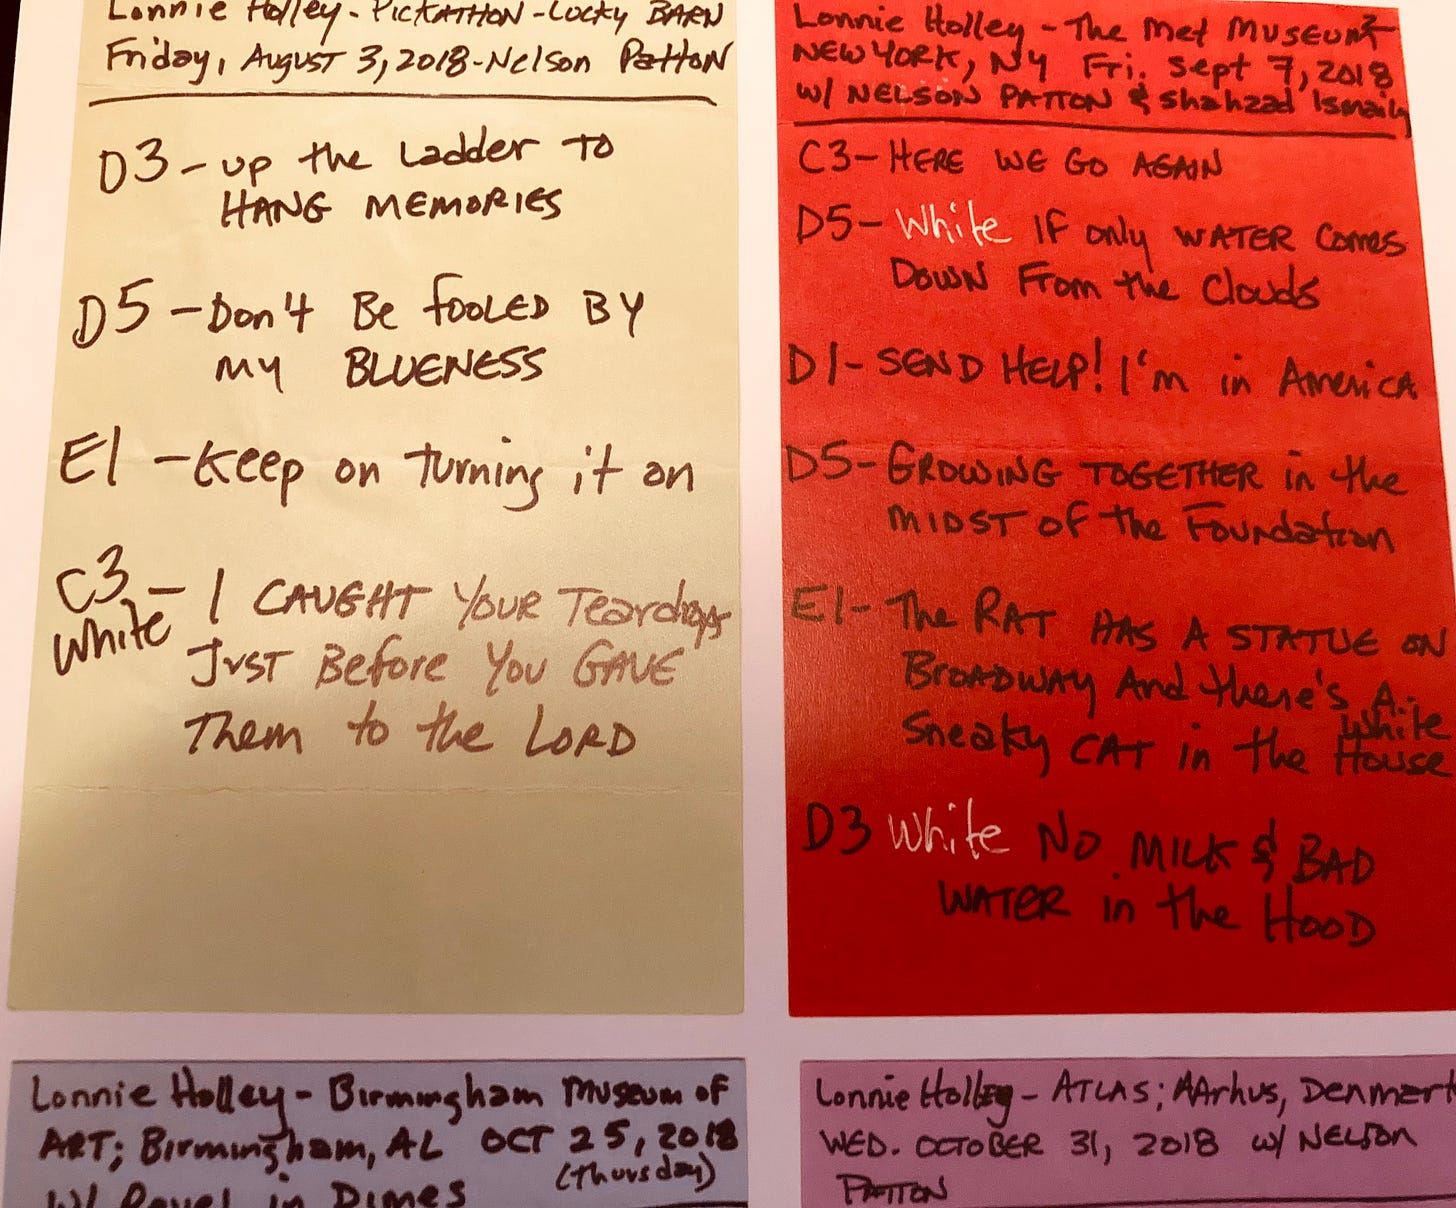 Lonnie Holley - PICKATHON - Lucky BARN
Friday, AUGUST 3, 2018 - Nelson PATTON
D3 - UP the LADDER TO
HANG MEMORIES
D5 - Don't Be fOOLED BY
MY BLUENESS
E1 - Keep on turning it on
C3 - I CAUGHT YOUR Teardrops
White
JUST Before YOU GAVE
Them to the LORD
Lonnie Holley - The Met Museum
NEW YORK, NY Fri. Sept 7, 2018
W/ NELSON PATTON & Shahzad Ismaily
C3 - HERE WE GO AGAIN
D5 - White IF only WATER Comes
DOWN From the Clouds
D1 - SEND HELP! I'm in America
D5 - GROWING TOGETHER in the
MIDST OF the Foundation
E1 - The RAT HAS A STATUE ON
BROADWAY And there's A
Sneaky CAT in the White House
D3 White NO MILK & BAD
WATER in the HOOD
Lonnie Holley - Birmingham Museum OF
ART; Birmingham, AL OCT 25, 2018
(thursday)
W/ in Dimes
Lonnie Holley - ATLAS; AArhus, Denmark
WED. OCTOBER 31, 2018 W/ NELSON
PATTON